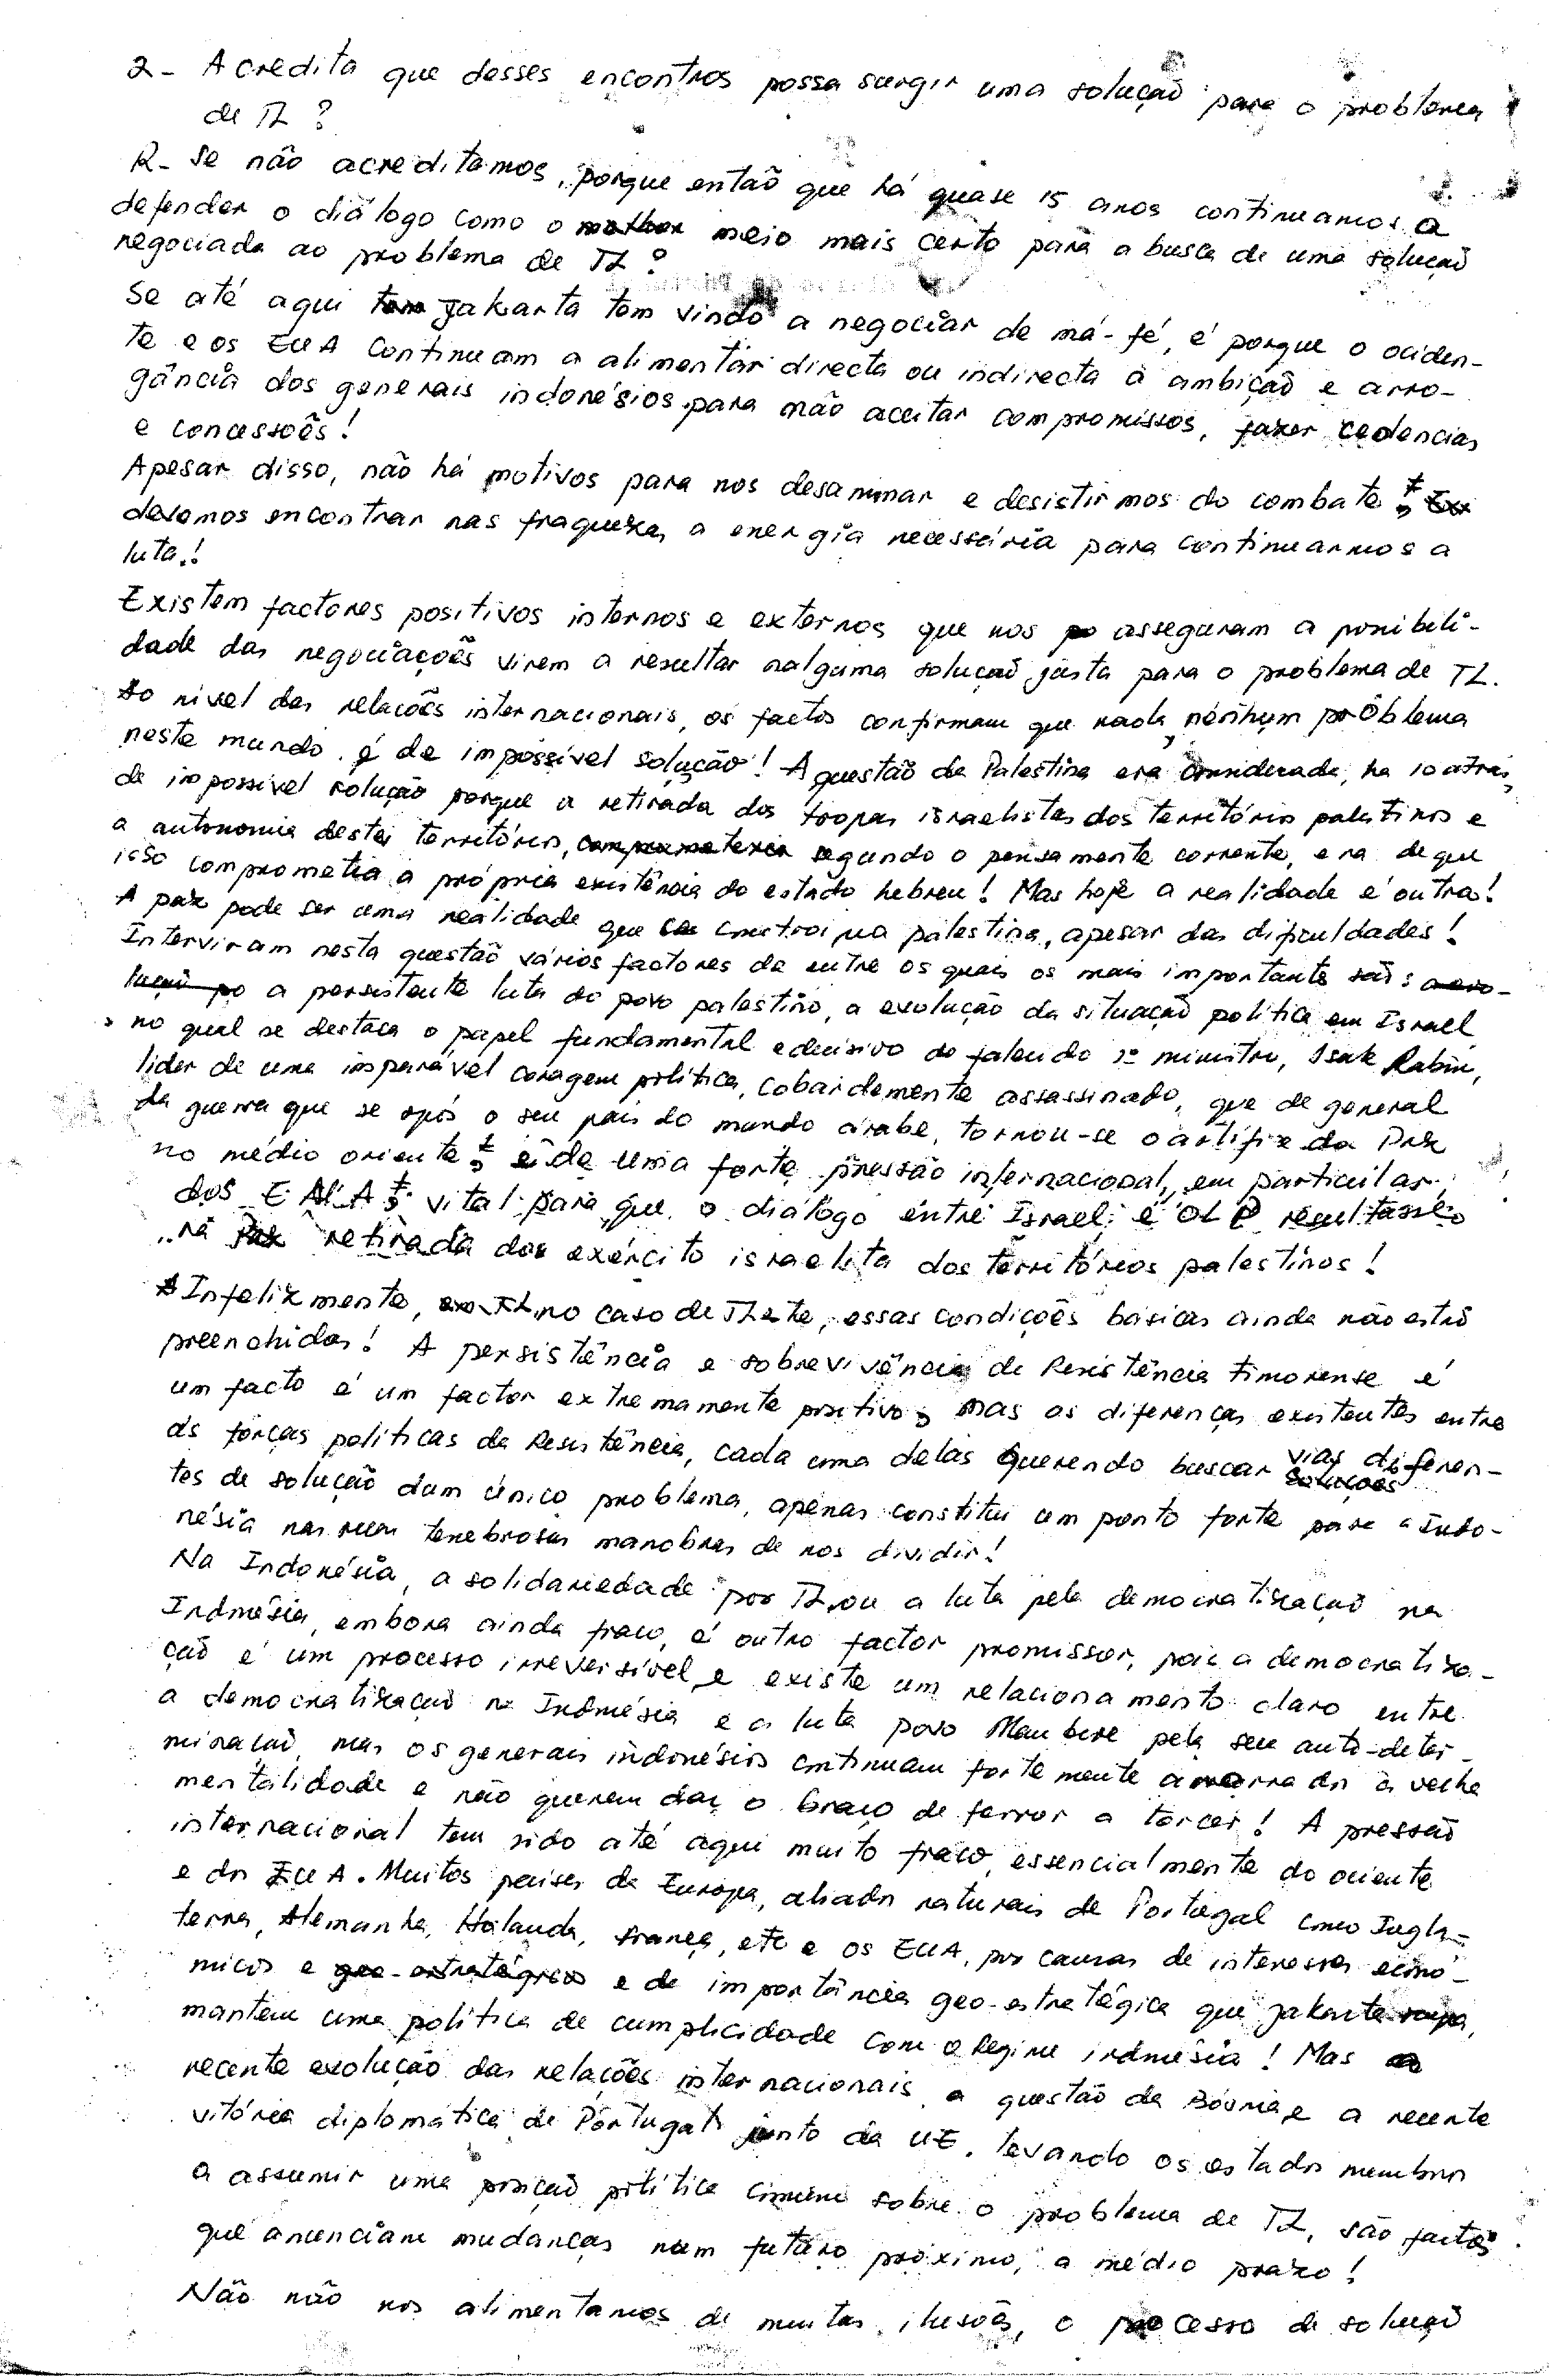 2- Acredita que desses encontros possa surgir uma solução para o problema
de TL?
R- Se não acreditamos, porque então que há quase 15 anos continuamos a
defender o diálogo como o melhor meio mais certo para a busca de uma solução
negociada ao problema de TL?
Se até aqui tem Jakarta tem vindo a negociar de má-fé, é porque o ociden-
te e os EUA continuam a alimentar directa ou indirecta a ambição e arro-
gância dos generais indonésios para não aceitar compromissos, fazer cedencias
e concessões!
Apesar disso, não há motivos para nos desanimar e desistirmos do combate;
devemos encontrar nas fraquezas a energia necessária para continuarmos a
luta!
Existem factores positivos internos e externos que nos po asseguram a possibili-
dade das negociações virem a resultar nalguma solução justa para o problema de TL.
Ao nivel das relações internacionais, os factos confirmam que nada, nenhum problema
neste mundo é de impossível solução! A questão da Palestina era considerada, ha 10 atrás,
de impossivel solução porque a retirada das tropas israelistas dos territórios palestinos e
a autonomia destes territórios, comprometeria segundo o pensamente corrente, era de que
isso comprometia a própria existência do estado hebreu! Mas hoje a realidade é outra!
A paz pode ser uma realidade que se constroi na palestina, apesar das dificuldades!
Interviram nesta questão vários factores de entre os quais os mais importante são: a evo-
lução po a persistente luta do povo palestino, a evolução da situação politica em Israel
no qual se destaca o papel fundamental e decisivo do falecido 1º ministro, Isak Rabin,
lider de uma imparável coragem politica, cobardemente assassinado, que de general
da guerra que se opôs o seu pais do mundo árabe, tornou-se o artífix da Paz
no médio oriente; e de uma forte pressão internacional, em particular
dos E.U.A; vital para que o diálogo entre Israel e OLP resultasse
na Paz retirada dos exército israelita dos territórios palestinos!
Infelizmente, em TL no caso de TLeste, essas condições básicas ainda não estão
preenchidas! A persistência e sobrevivência da Resistência timorense é
um facto é um factor extremamente positivo; mas as diferenças existentes entre
as forças politicas da Resistência, cada uma delas querendo buscar soluções vias diferen-
tes de solução dum único problema, apenas constitui um ponto forte para a Indo-
nésia nas suas tenebrosas manobras de nos dividir!
Na Indonésia, a solidariedade por TL, ou a luta pela democratização na
Indonésia, embora ainda fraco, é outro factor promissor, pois a democratiza-
ção é um processo irreversível e existe um relacionamento claro entre
a democratização na Indonésia e a luta povo Maubere pela seu auto-deter-
minação, mas os generais indonésios continuam fortemente amarrados à velha
mentalidade e não querem dar o braço de ferror a torcer! A pressão
internacional tem sido até aqui muito fraco, essencialmente do ociente
e dos EUA. Muitos países da Europa, aliados naturais de Portugal como Ingla-
terra, Alemanha, Holanda, França, etc e os EUA, por causas de interesses econó-
micos e geo-estratégicos e de importância geo-estratégica que Jakarta
mantem uma politica de cumplicidade com o Regime indonésia! Mas a
recente evolução das relações internacionais, a questão da Bósnia, e a recente
vitória diplomática de Portugal junto da UE, levando os estados membros
a assumir uma posição politica comum sobre o problema de TL, são factos
que anunciam mudanças num futuro próximo, a médio prazo!
Não não nos alimentamos de muitas ilusões, o processo de solução